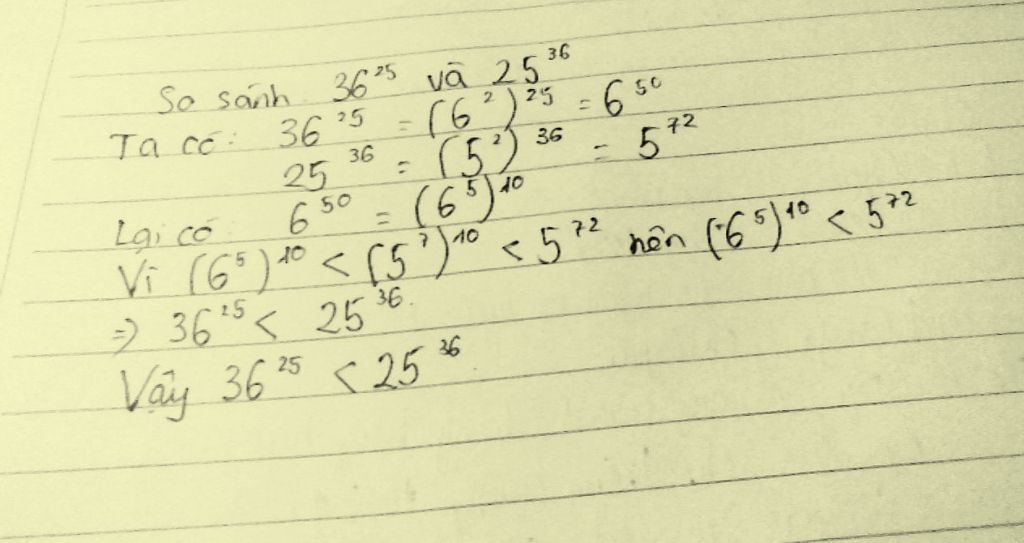 So sánh 36²⁵ và 25³⁶
Ta có: 36²⁵ = (6²)²⁵ = 6⁵⁰
25³⁶ = (5²)³⁶ = 5⁷²
Lại có 6⁵⁰ = (6⁵)¹⁰
Vì (6⁵)¹⁰ < (5⁷)¹⁰ < 5⁷² nên (6⁵)¹⁰ < 5⁷²
=> 36²⁵ < 25³⁶.
Vậy 36²⁵ < 25³⁶